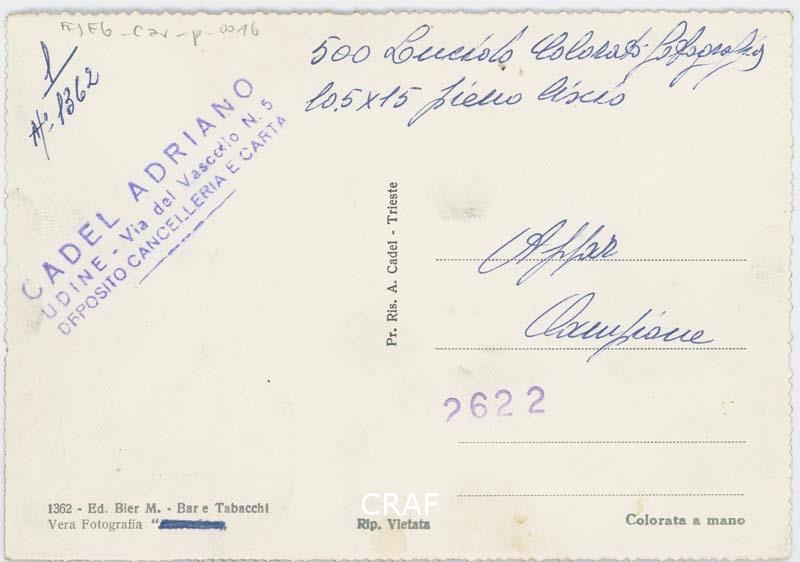 FJE6-Car-p-0016
1
N° 1362
500 Lucido Colorato fotografia
10.5x15 pieno liscio
CADEL ADRIANO
UDINE - Via del Vascello N. 5
DEPOSITO CANCELLERIA E CARTA
Pr. Ris. A. Cadel - Trieste
Campione
2622
1362 - Ed. Bier M. - Bar e Tabacchi
Vera Fotografia "
CRAF
Rip. Vietata
Colorata a mano